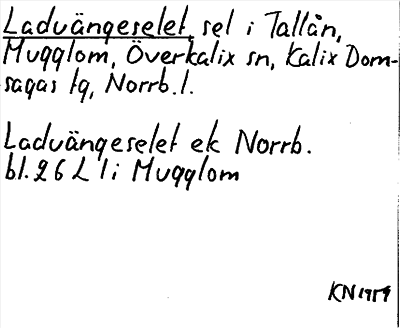 Laduängeselet, sel i Tallån,
Mugglom, Överkalix sn, Kalix Dom-
sagas tg, Norrb. l.
Laduängeselet ek Norrb.
bl. 26 L 1 i Mugglom
KN 1959